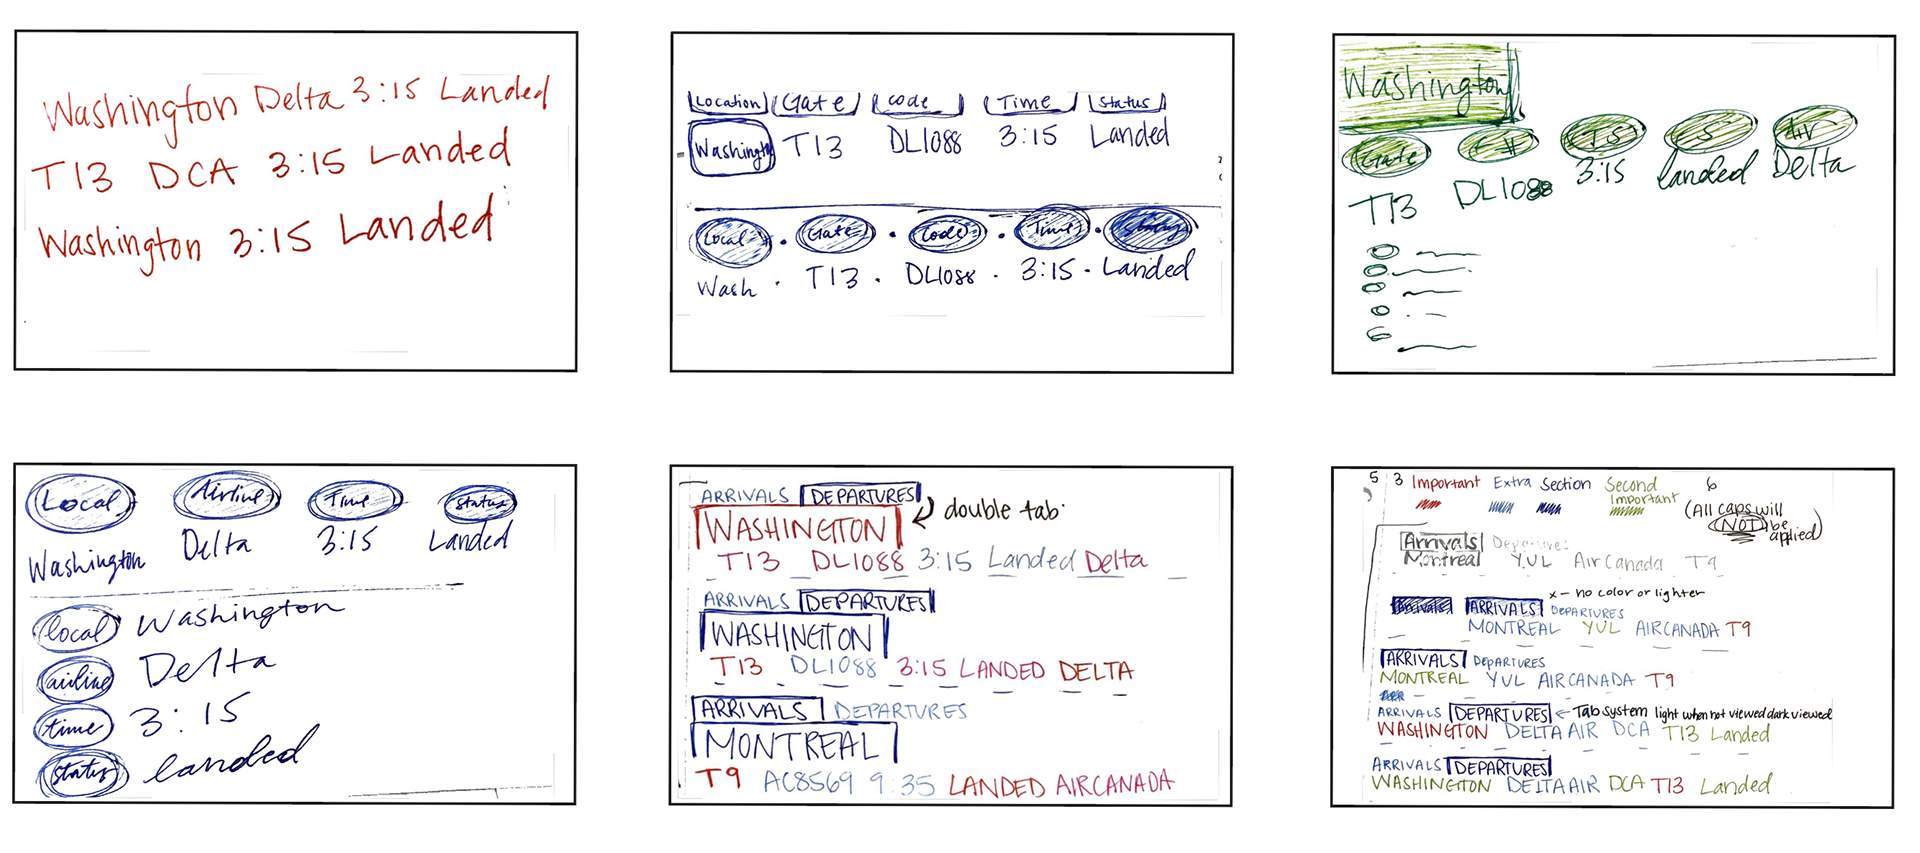 Washington Delta 3:15 Landed
T13 DCA 3:15 Landed
Washington 3:15 Landed
Location Gate code Time Status
Washington T13 DL1088 3:15 Landed
Local Gate Code Time
Wash · T13 · DL1088 · 3:15 · Landed
Washington
Gate # TS S Air
T13 DL1088 3:15 landed Delta
Local Airline Time Status
Washington Delta 3:15 Landed
local Washington
airline Delta
time 3:15
status landed
ARRIVALS DEPARTURES
double tab
WASHINGTON
T13 DL1088 3:15 Landed Delta
ARRIVALS DEPARTURES
WASHINGTON
T13 DL1088 3:15 LANDED DELTA
ARRIVALS DEPARTURES
MONTREAL
T9 AC8569 9:35 LANDED AIRCANADA
5 3 Important Extra Section Second Important 6
(All caps will NOT be applied)
Arrivals Departures
Montreal YUL Air Canada T9
x - no color or lighter
Arrivals ARRIVALS DEPARTURES
MONTREAL YUL AIRCANADA T9
ARRIVALS DEPARTURES
MONTREAL YUL AIRCANADA T9
ARRIVALS DEPARTURES ← Tab system light when not viewed dark viewed
WASHINGTON DELTA AIR DCA T13 Landed
ARRIVALS DEPARTURES
WASHINGTON DELTA AIR DCA T13 Landed